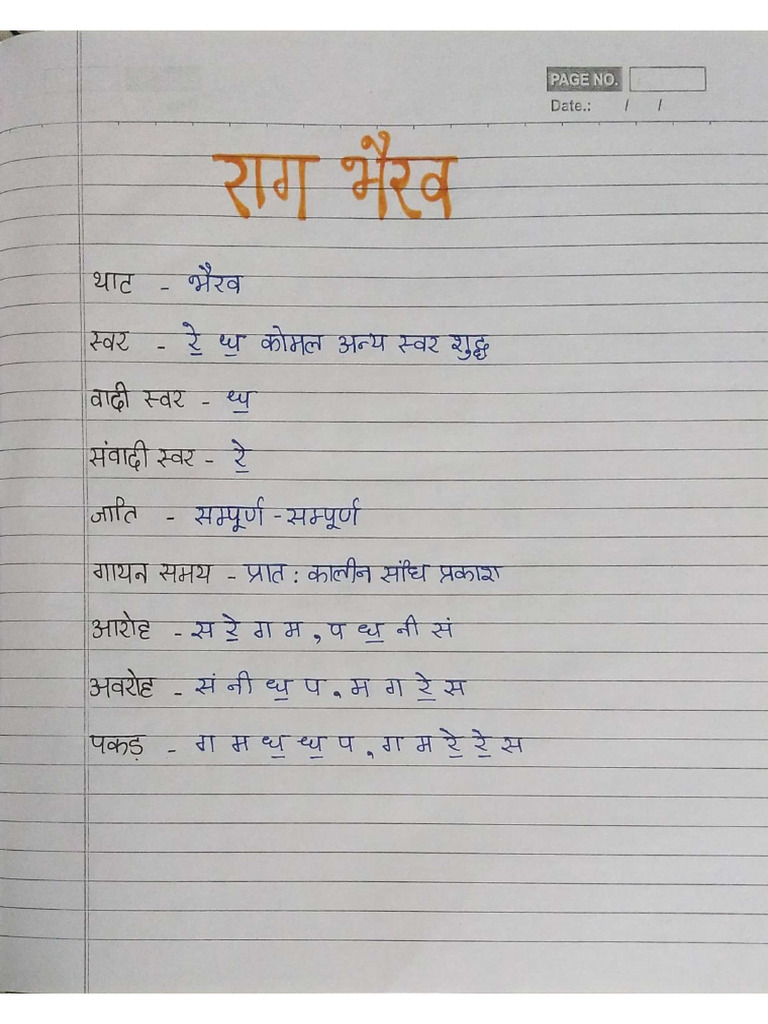 PAGE NO.
Date.: / /
राग भैरव
थाट - भैरव
स्वर - रे॒ ध॒ कोमल अन्य स्वर शुद्ध
वादी स्वर - ध॒
संवादी स्वर - रे॒
जाति - सम्पूर्ण - सम्पूर्ण
गायन समय - प्रात: कालीन संधि प्रकाश
आरोह - स रे॒ ग म , प ध॒ नी सं
अवरोह - सं नी ध॒ प , म ग रे॒ स
पकड़ - ग म ध॒ ध॒ प , ग म रे॒ रे॒ स